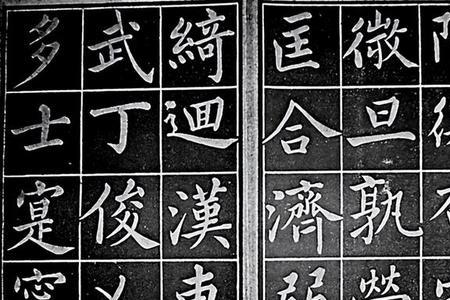 微旦孰
匡合濟
綺迴漢
武丁俊
多士寔